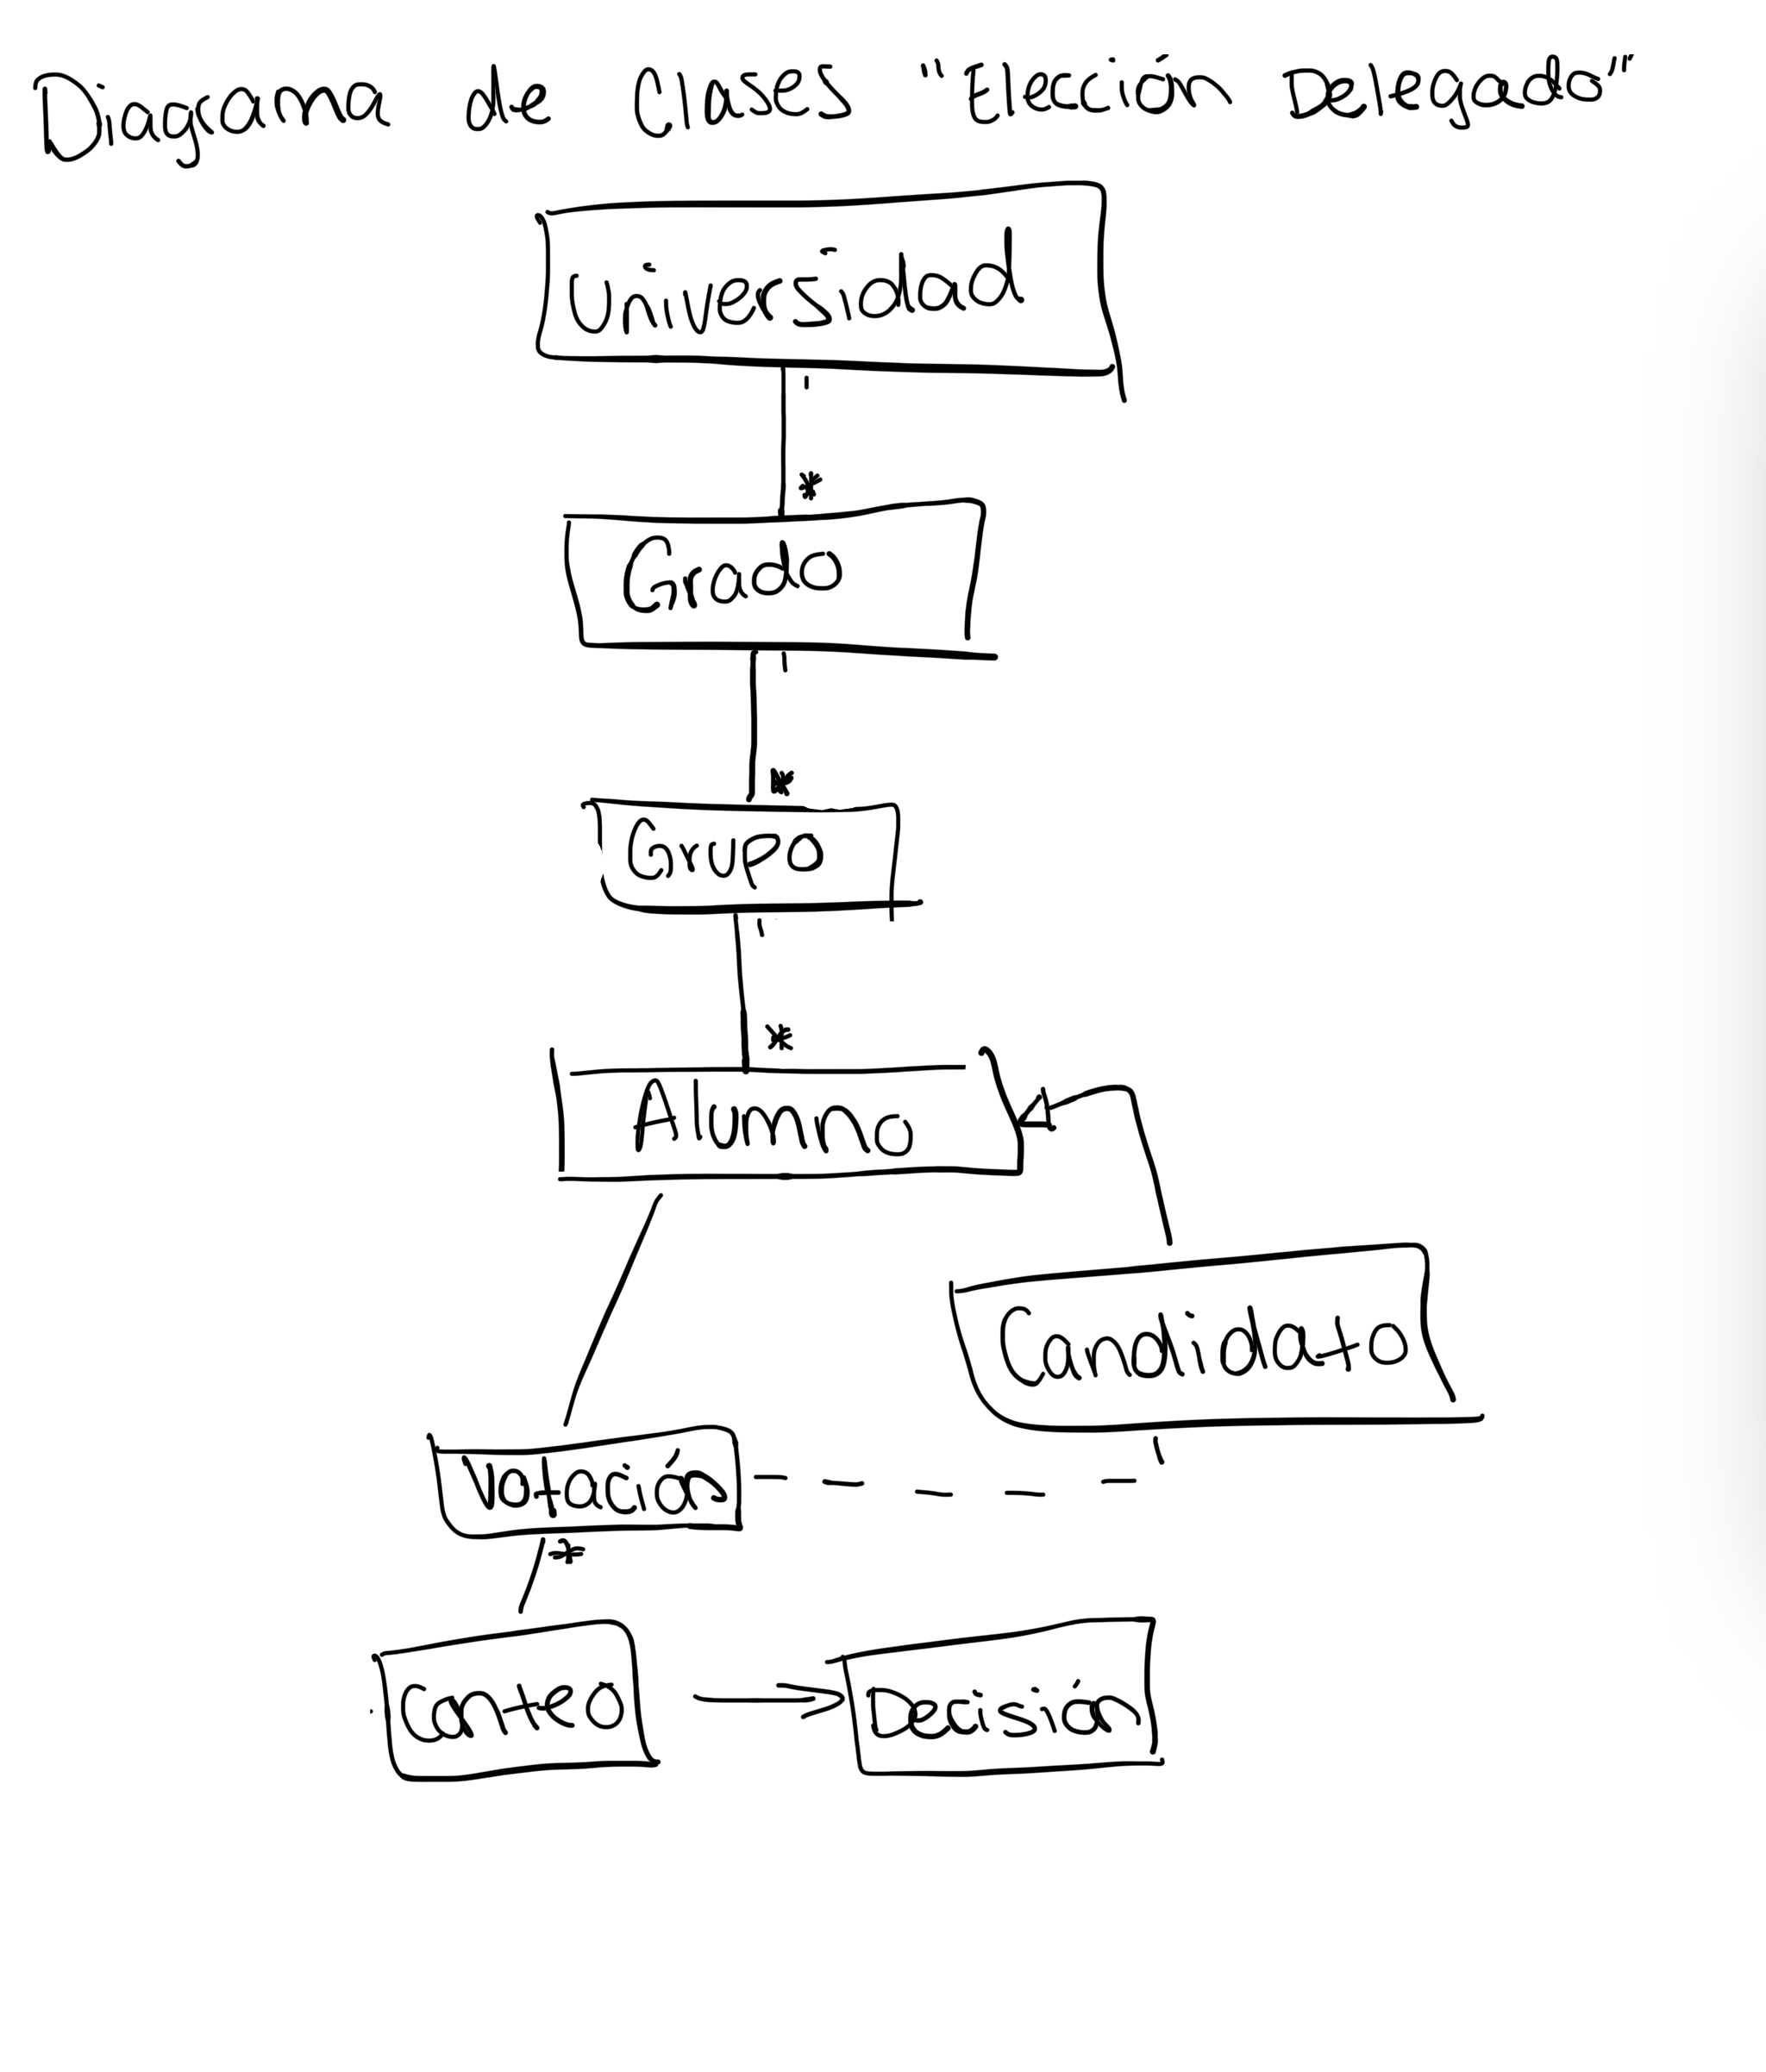 Diagrama de Clases "Elección Delegado"
Universidad
1
*
Grado
1
*
Grupo
1
*
Alumno
Candidato
Votación
*
Conteo
Decisión